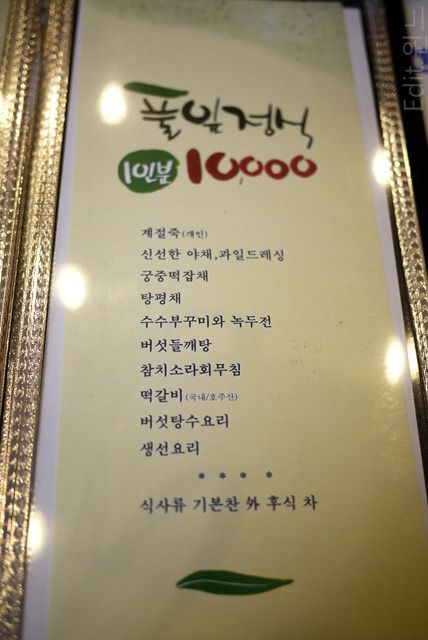 풀잎정식
1인분 10,000
계절죽(개인)
신선한 야채,과일드레싱
궁중떡잡채
탕평채
수수부꾸미와 녹두전
버섯들깨탕
참치소라회무침
떡갈비(국내/호주산)
버섯탕수요리
생선요리
* * * *
식사류 기본찬 外 후식 차
Edit 윈드